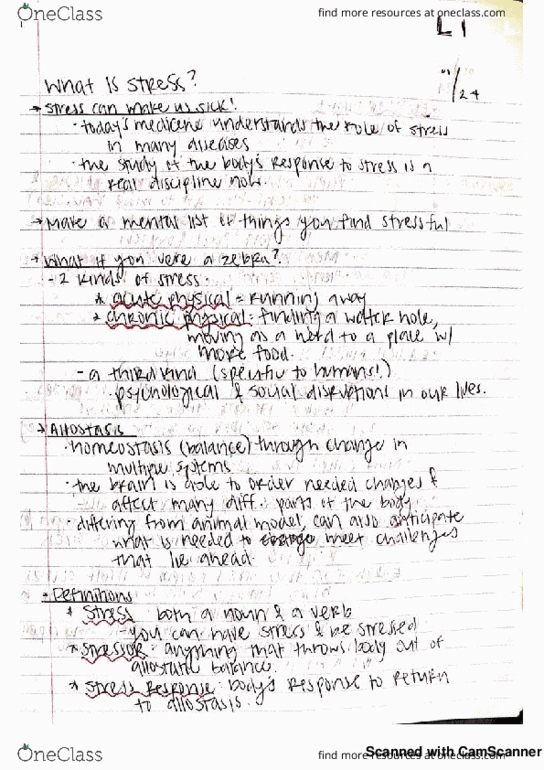 OneClass
find more resources at oneclass.com
L1
/24
What is stress?
→ stress can make us sick!
· today's medicine understands the role of stress
in many diseases
· the study of the body's response to stress is a
real discipline now.
→ Make a mental list of things you find stressful
→ What if you were a zebra?
- 2 kinds of stress.
* acute physical = running away
* chronic physical = finding a watering hole,
moving as a herd to a place w/
more food.
- a third kind (specific to humans!)
· psychological & social disruptions in our lives.
→ Allostasis
· homeostasis (balance) through change in
multiple systems
· the brain is able to order needed changes &
affect many diff. parts of the body
· differing from animal model, can also anticipate
what is needed to meet challenges
that lie ahead.
→ Definitions
* Stress both a noun & a verb
- you can have stress & be stressed
* Stressor: anything that throws body out of
allostatic balance.
* Stress Response: body's response to return
to allostasis.
OneClass
find more resources at oneclass.com
Scanned with CamScanner